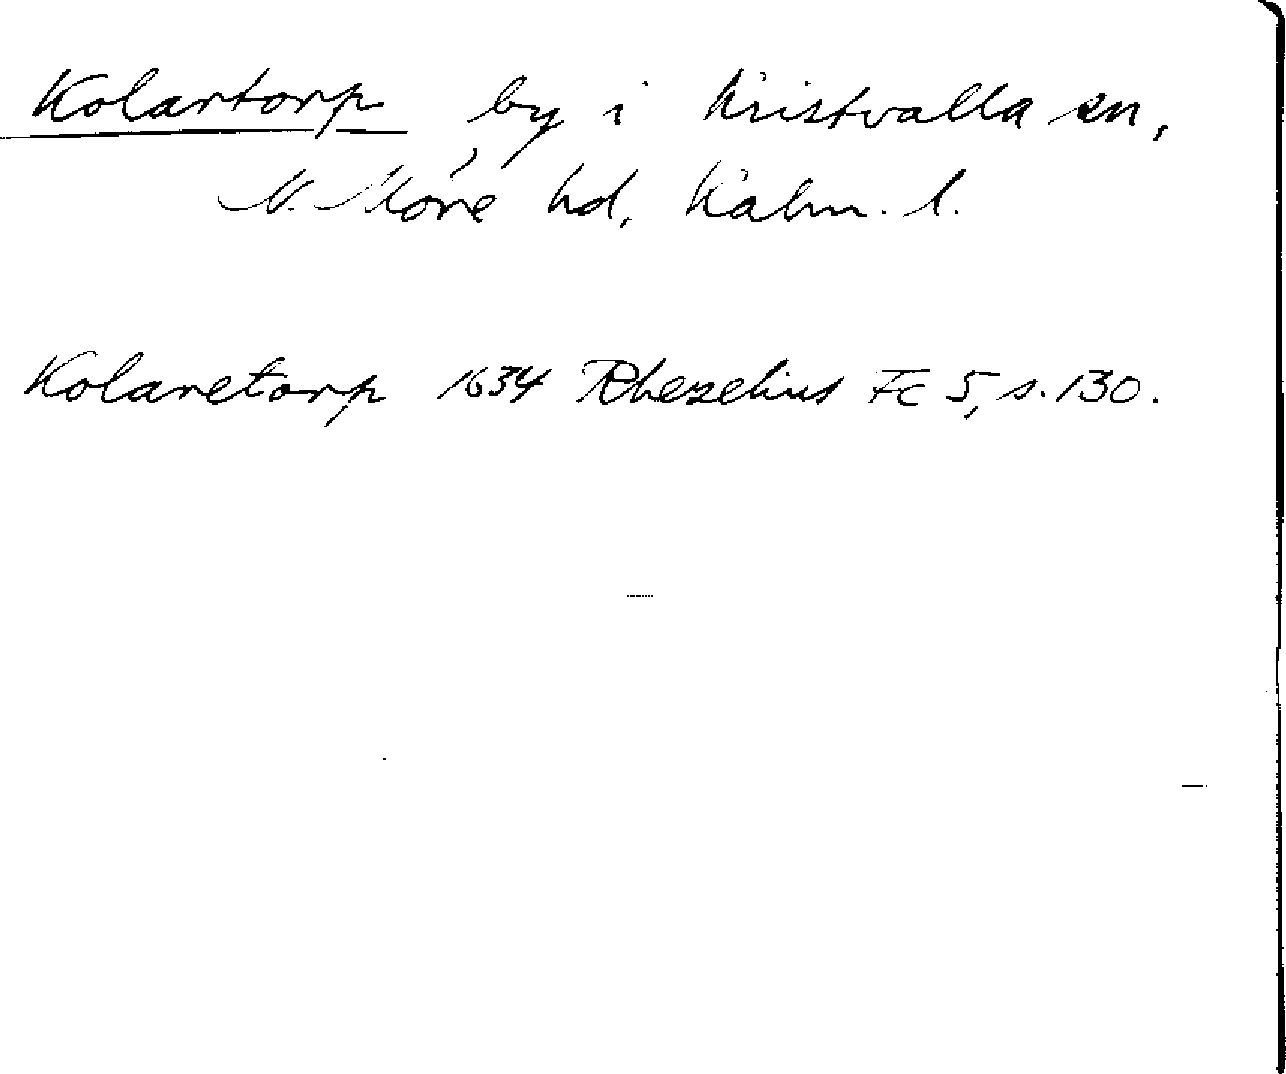 Kolartorp, by i Kristvalla sn,
N. Möre hd, Kalm. l.
Kolaretorp 1634 Rhezelius Fc 5, s. 130.